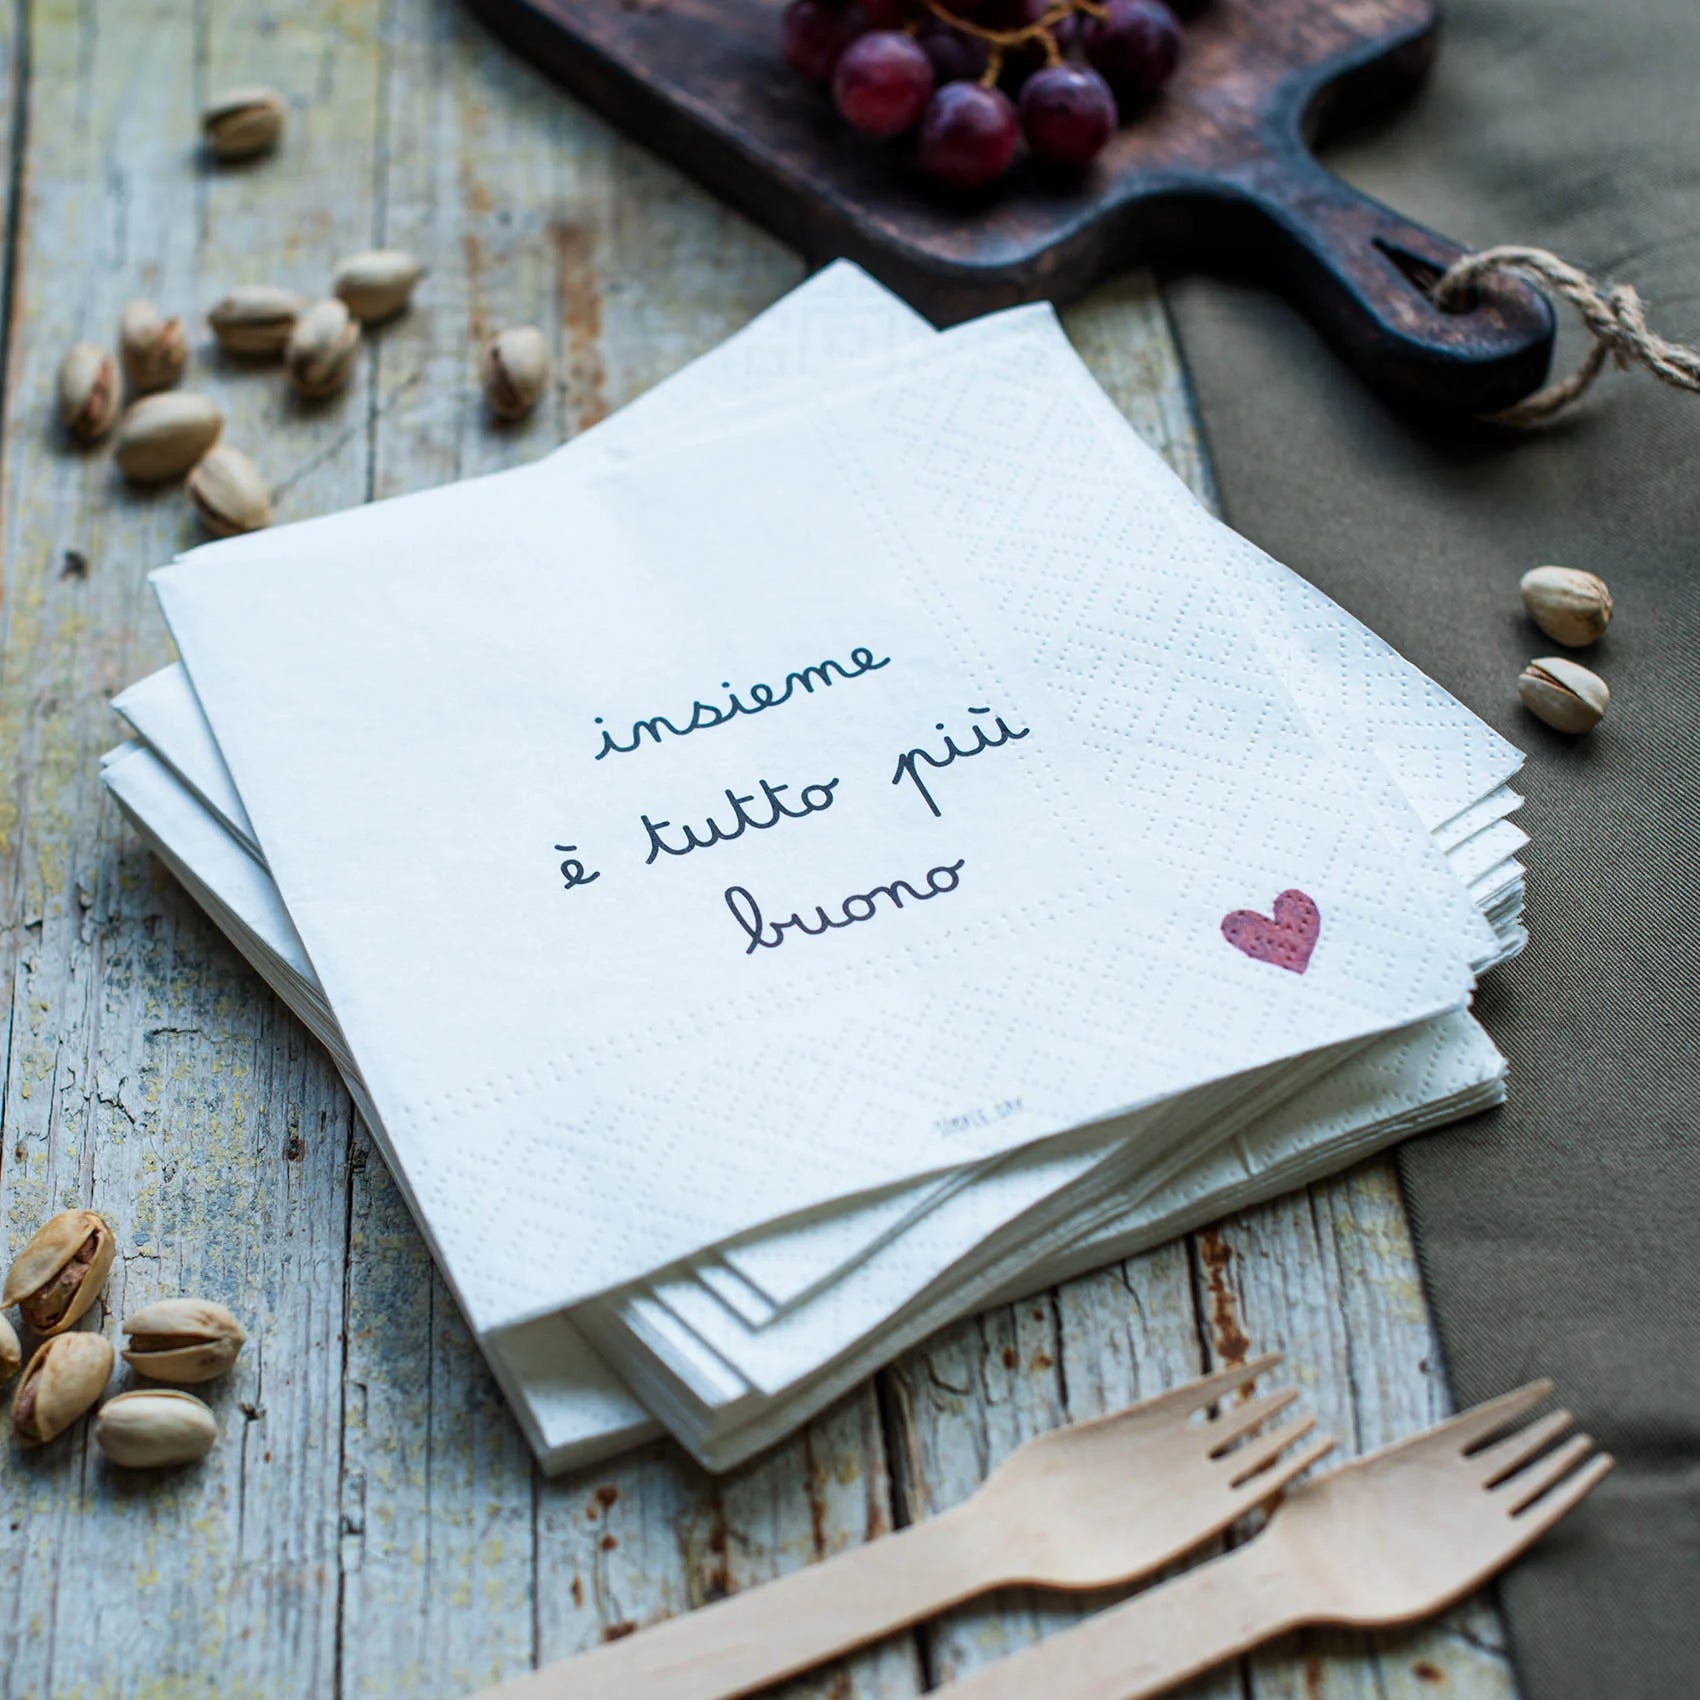 insieme
è tutto più
buono
SIMPLE DAY